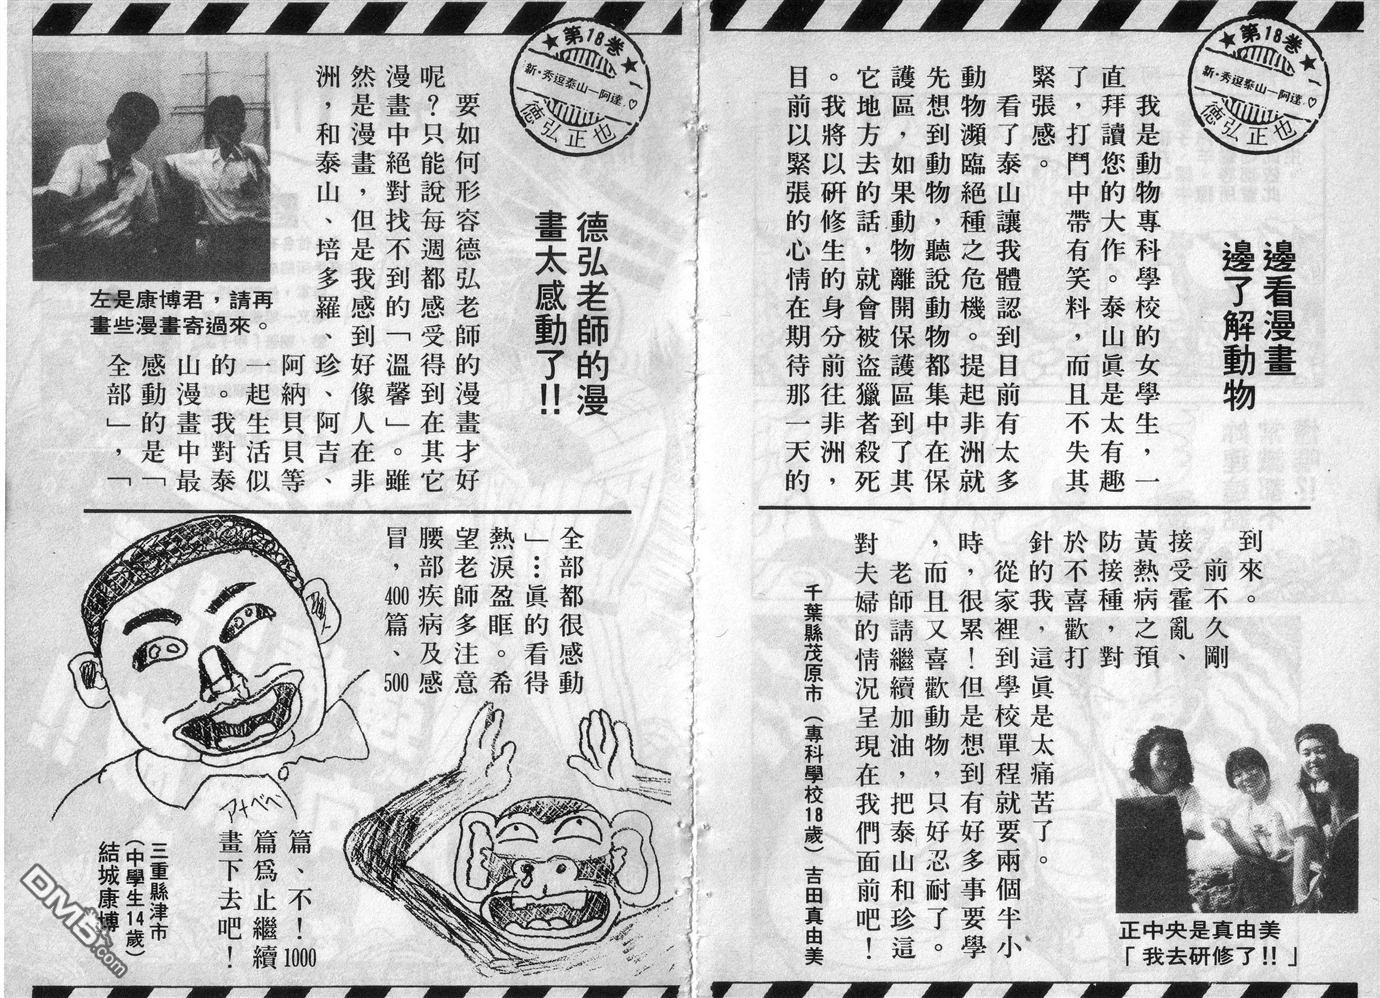 ★第18卷★
新·秀逗泰山—阿達♡
德弘正也
邊看漫畫
邊了解動物
我是動物專科學校的女學生，一
直拜讀您的大作。泰山真是太有趣
了，打鬥中帶有笑料，而且不失其
緊張感。
看了泰山讓我體認到目前有太多
動物瀕臨絕種之危機。提起非洲就
先想到動物，聽說動物都集中在保
護區，如果動物離開保護區到了其
它地方去的話，就會被盜獵者殺死
。我將以研修生的身分前往非洲，
目前以緊張的心情在期待那一天的
到來。
前不久剛
接受霍亂、
黃熱病之預
防接種，對
於不喜歡打
針的我，這真是太痛苦了。
從家裡到學校單程就要兩個半小
時，很累！但是想到有好多事要學
，而且又喜歡動物，只好忍耐了。
老師請繼續加油，把泰山和珍這
對夫婦的情況呈現在我們面前吧！
千葉縣茂原市（專科學校18歲）吉田真由美
正中央是真由美
「我去研修了!!」
★第18卷★
新·秀逗泰山—阿達♡
德弘正也
德弘老師的漫
畫太感動了!!
要如何形容德弘老師的漫畫才好
呢？只能說每週都感受得到在其它
漫畫中絕對找不到的「溫馨」。雖
然是漫畫，但是我感到好像人在非
洲，和泰山、培多羅、珍、阿吉、
阿納貝貝等
一起生活似
的。我對泰
山漫畫中最
感動的是「
全部」，「
全部都很感動
」…真的看得
熱淚盈眶。希
望老師多注意
腰部疾病及感
冒，400篇、500
篇、不！1000
篇為止繼續
畫下去吧！
三重縣津市
（中學生14歲）
結城康博
左是康博君，請再
畫些漫畫寄過來。
アナベベ
DM5.com